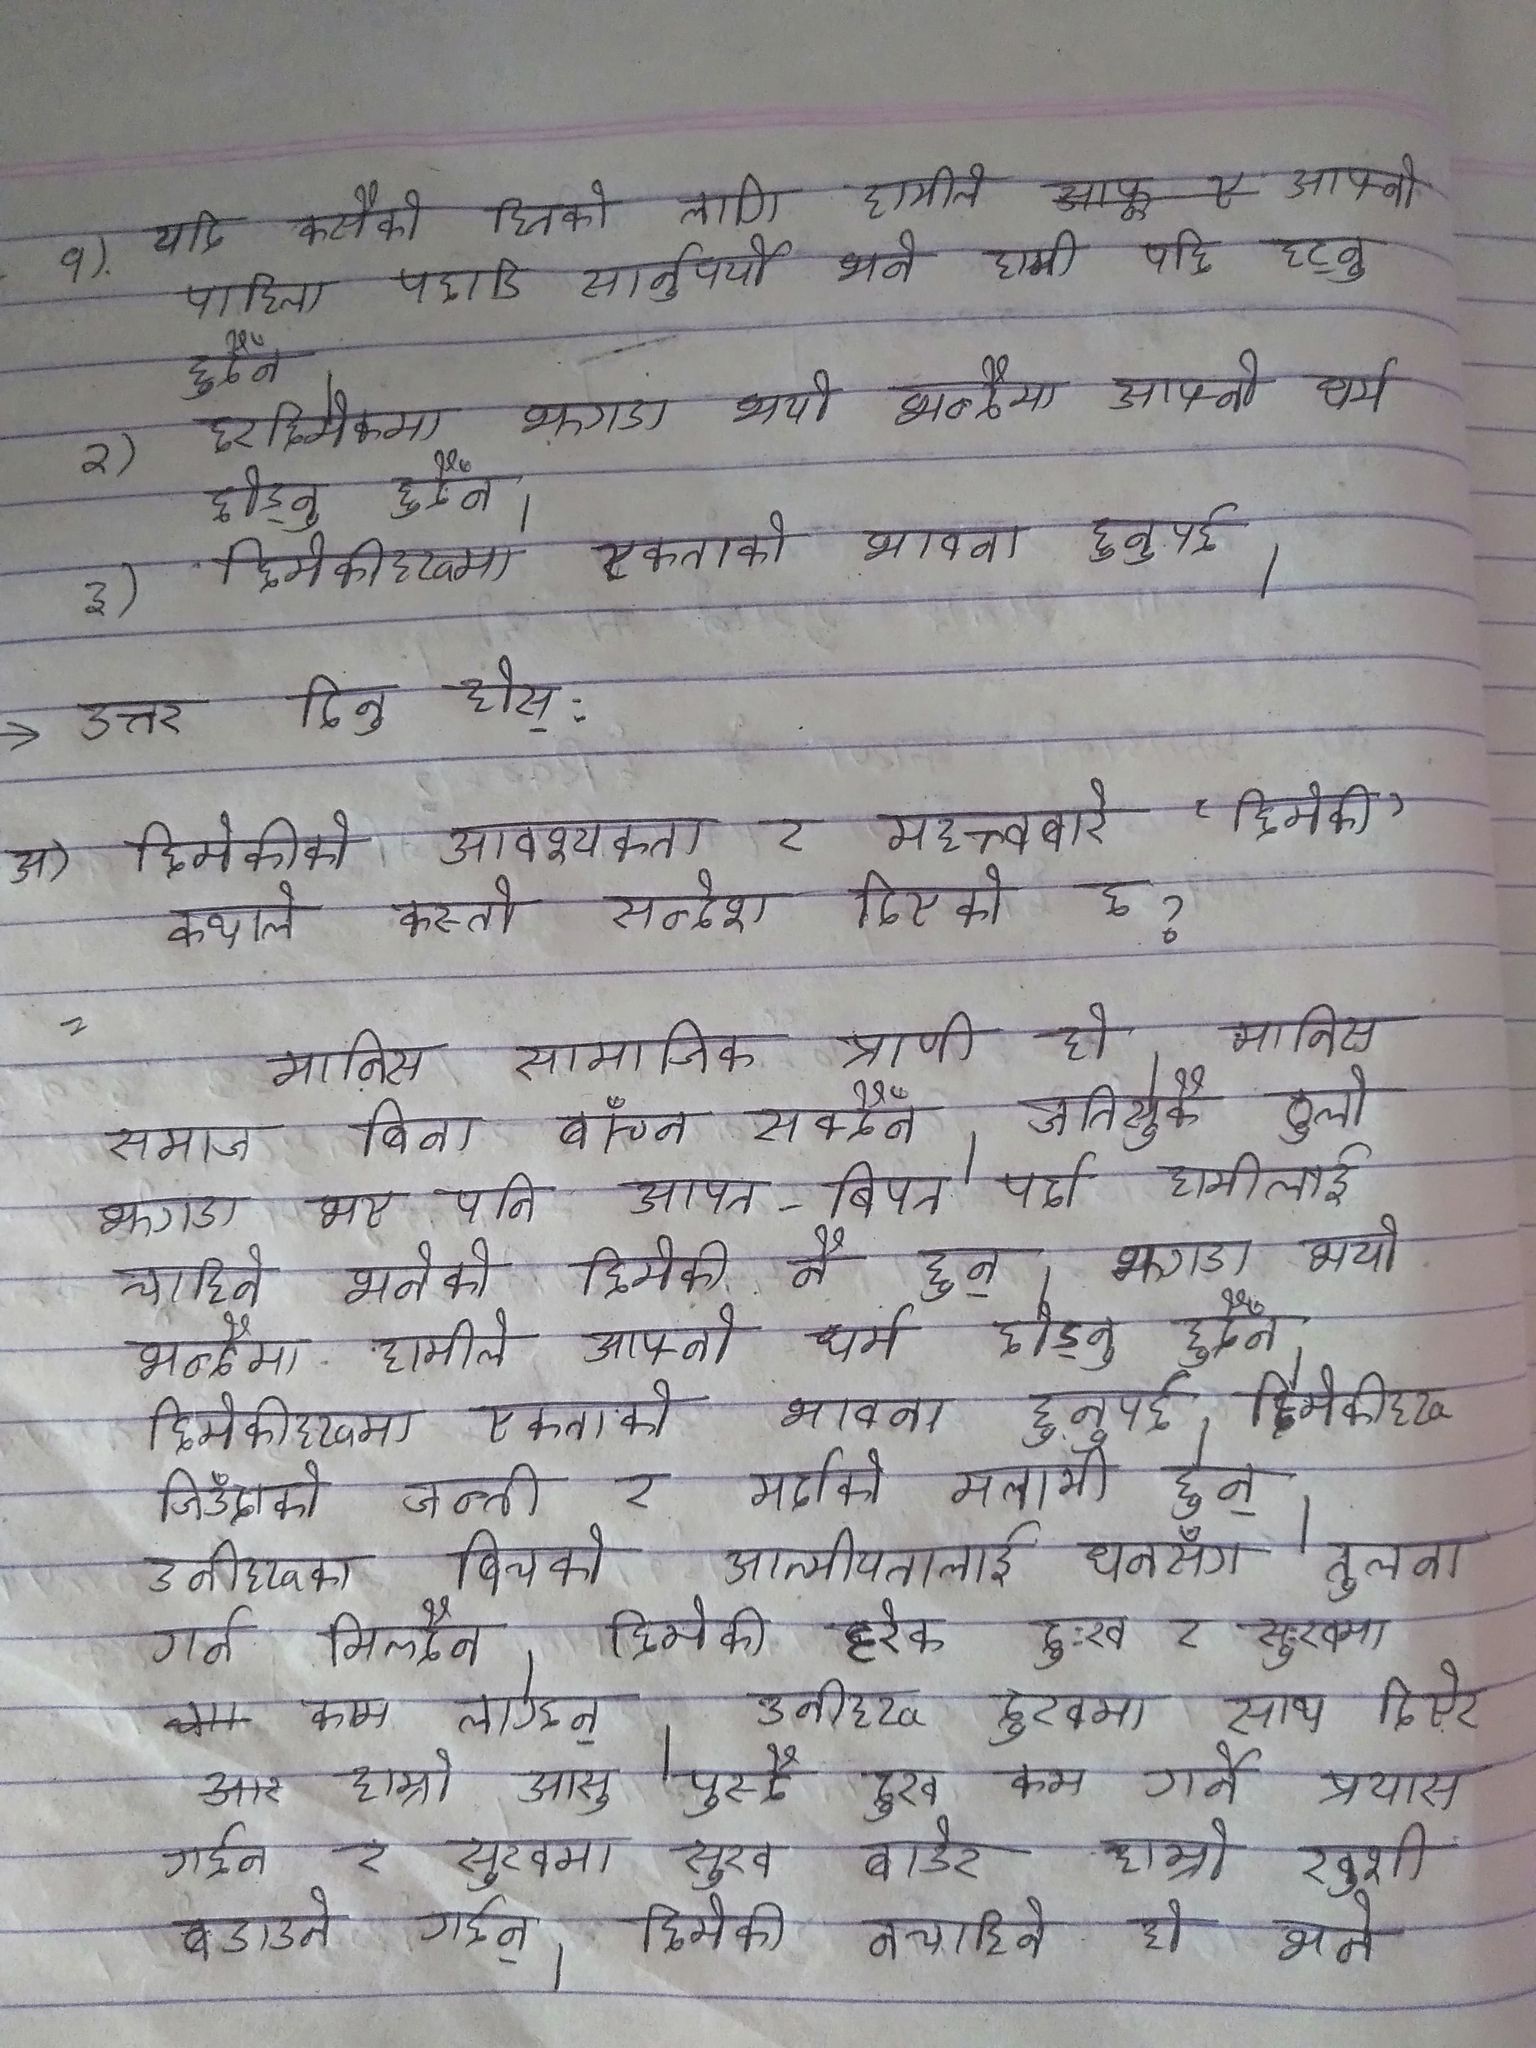 १). यदि कसैको हितको लागि हामीले आफू ए आफ्नो
पाहिला पछाडि सार्नुपर्यो भने हामी पछि हट्नु
हुदैँन ।
२) छरछिमेकमा झगडा भयो भन्दैमा आफ्नो धर्म
छोड्नु हुदैँन ।
३) छिमेकीहरूमा एकताको भावना हुनुपर्छ ।
→ उत्तर दिनु होस् :
अ) छिमेकीको आवश्यकता र महत्त्वबारे 'छिमेकी'
कथाले कस्तो सन्देश दिएको छ ?
=
मानिस सामाजिक प्राणी हो । मानिस
समाज बिना बाँच्न सक्दैनँ । जतिसुकै ठुलो
झगडा भए पनि आपत - बिपत पर्दा हामीलाई
चाहिने भनेको छिमेकी नै हुन् । झगडा भयो
भन्दैमा हामीले आफ्नो धर्म छोड्नु हुदैँन ।
छिमेकीहरूमा एकताको भावना हुनुपर्छ । छिमेकीहरू
जिउँदाको जन्ती र मर्दाको मलामी हुन् ।
उनीहरूका बिचको आत्मीयतालाई धनसँग तुलना
गर्न मिल्दैन । छिमेकी हरेक दुःख र सुःखमा
काम लाग्छन् । उनीहरू दुखमा साथ दिएर
आर हाम्रो आसु पुस्दै दुख कम गर्ने प्रयास
गर्छन र सुखमा सुख बाडेर हाम्रो खुशी
बडाउने गर्छन् । छिमेकी नचाहिने हो भने